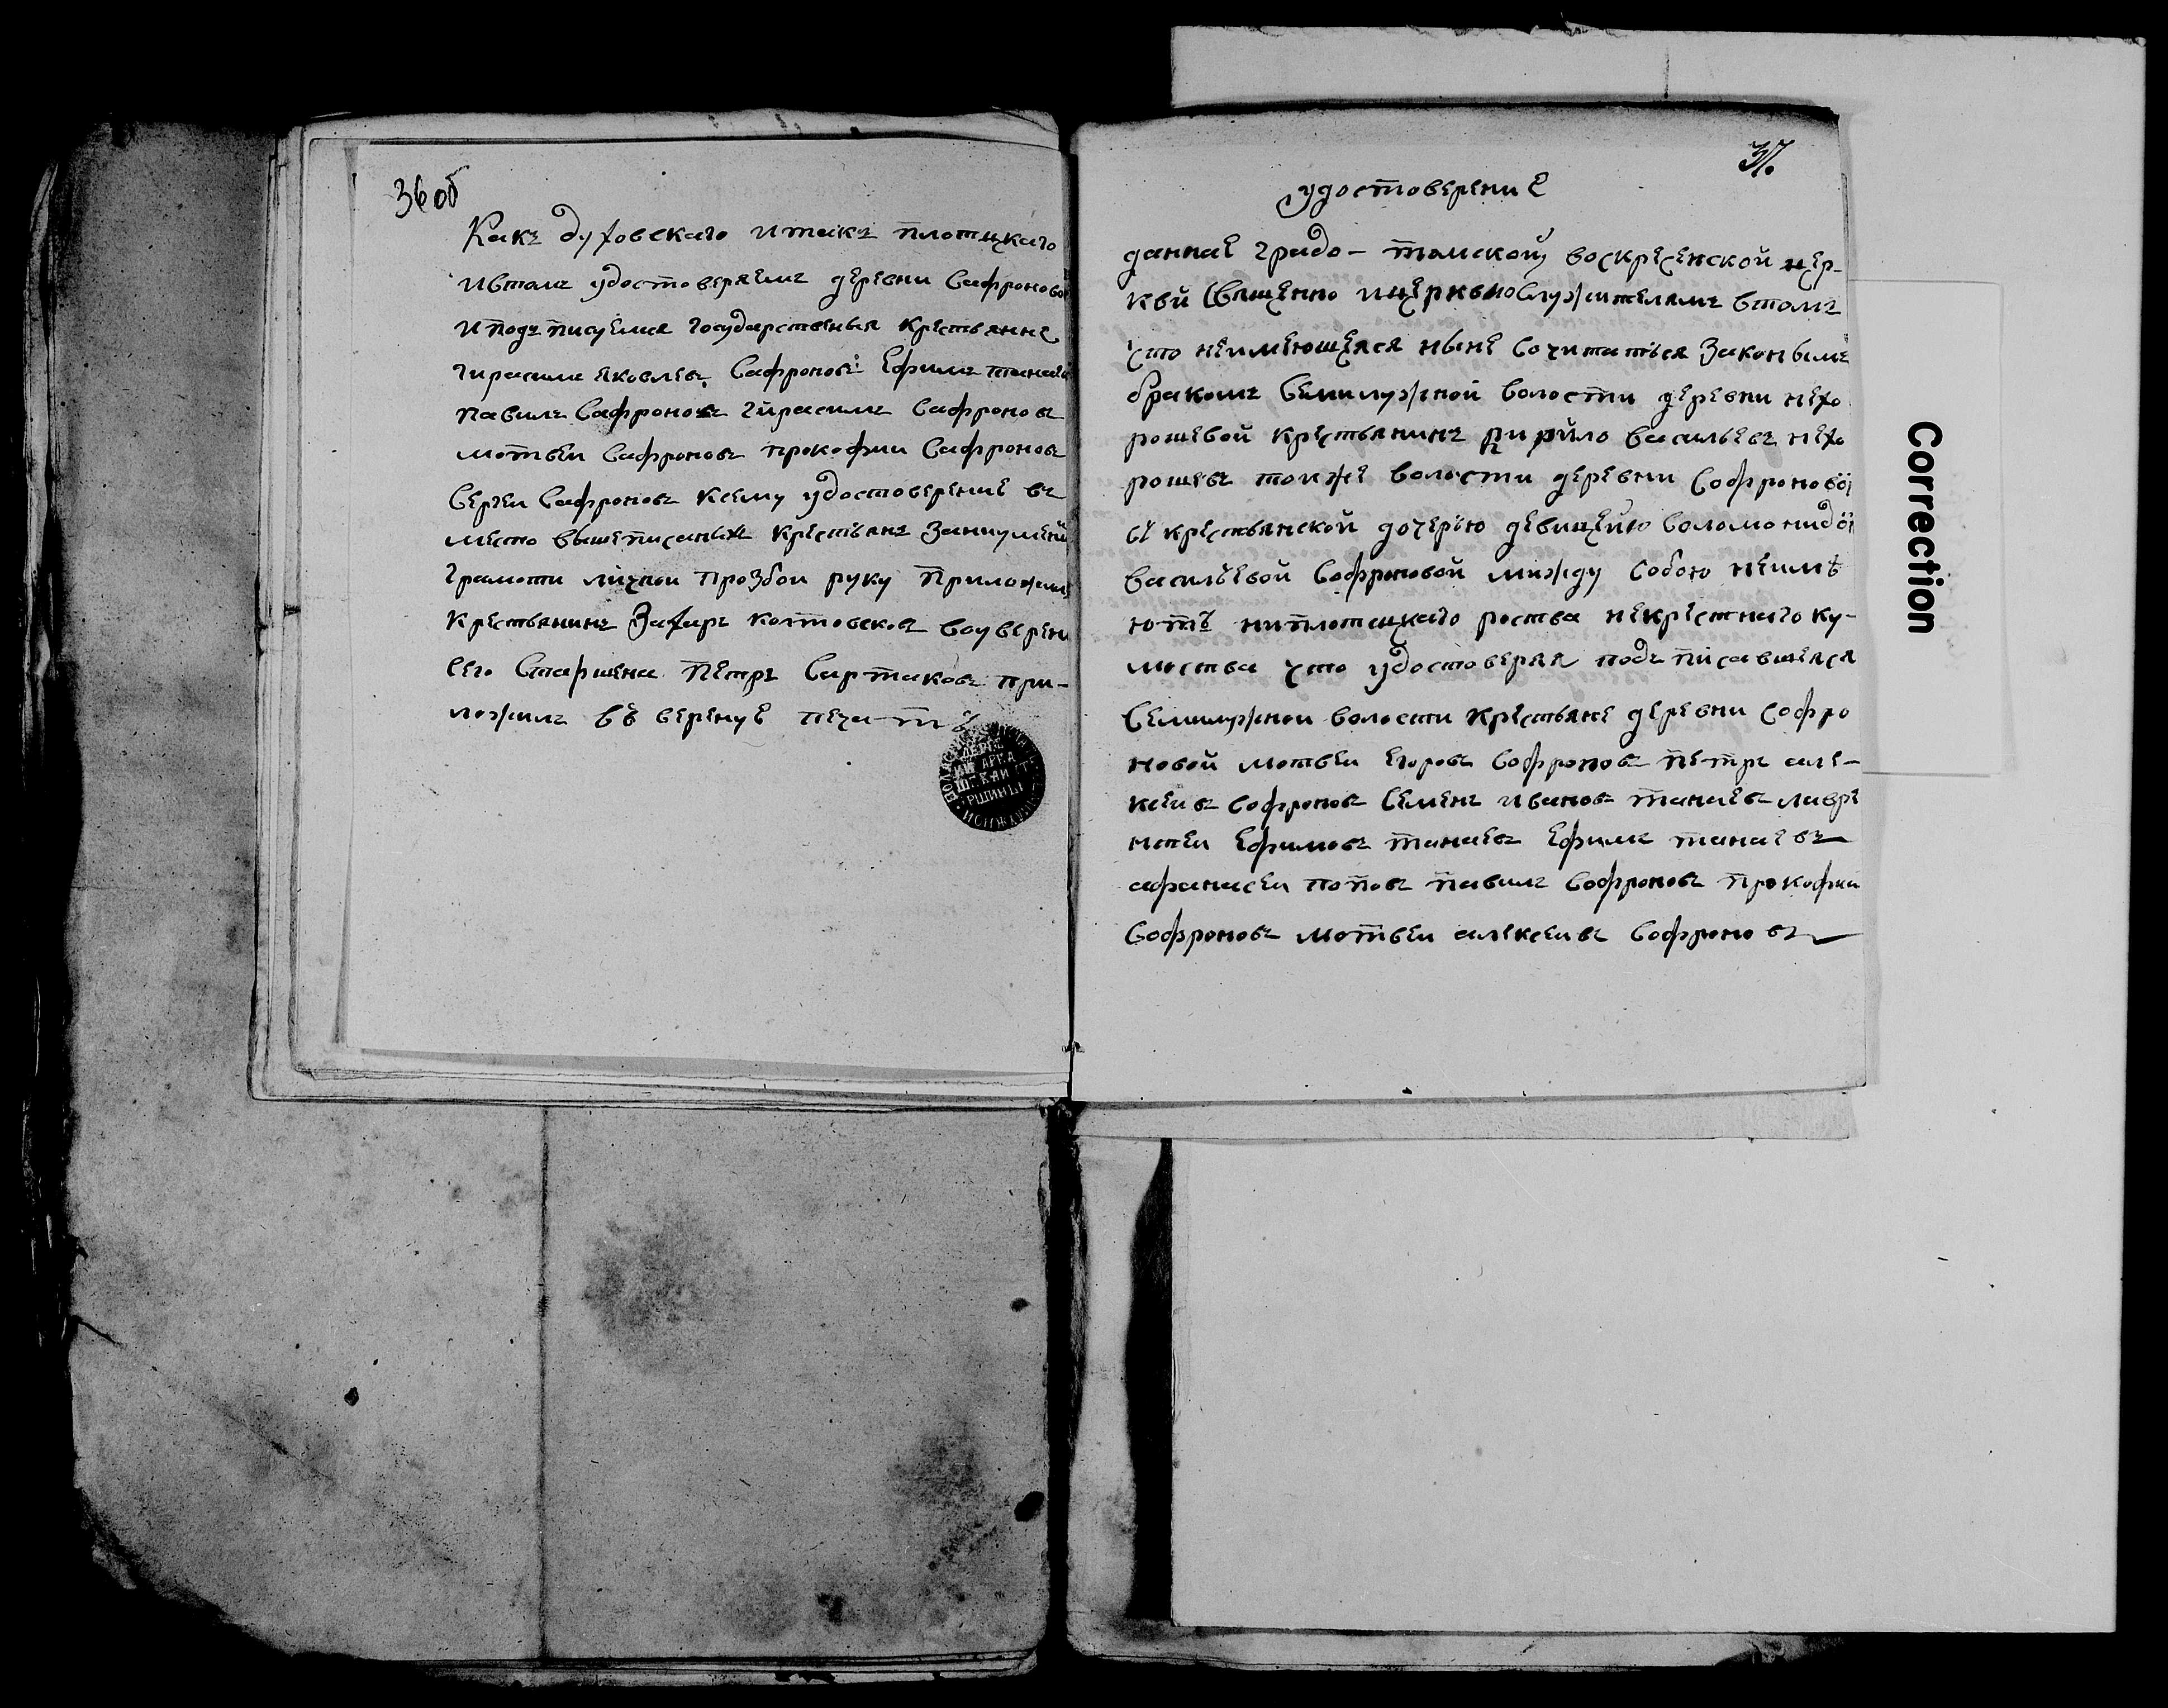 36 об
Какъ духовскаго итакъ плотцкаго
ивтомъ удостоверяемъ деревни Сафроново
и подъписуемся государственыя крестьянне
гирасимъ яковлевъ Сафроновъ Ефимъ танаи
павилъ Сафроновъ гирасимъ Сафроновъ
мотвеи Сафроновъ прокофии Сафроновъ
Сергеи Сафроновъ ксему удостоверение въ
место вышеписаныхъ крестьянъ
грамоти личнои прозбои руку приложилъ
крестьянинъ Захаръ колтовсков воуверени
сего Старшена Петръ Сартаковъ при-
ложилъ въ веренуе печать
37.
удостоверение
данное градо-томской воскресенской цер-
квй Священно ицерквнослужителямъ втомъ
что неимеющеяся ныне Сочитаться Законымъ
бракомъ Семилужной волости деревни нехо
рошевой крестьянинъ кирйло васильевъ нехо
рошевъ тойже волости деревни Софроновой
съ крестьянской дочерью девицейю Соломонидой
васильевой Софроновой между Собою неимѣ
ютъ ниплотцкаго роства некрестнаго ку-
мовства что удостоверяя подъписавшеяся
Семилужнои волости крестьяне деревни Софро
новой мотвеи егоровъ Софроновъ петръ але-
ксеивъ Софроновъ Семенъ ивановъ танаевъ лавре
нтеи Ефимовъ танаевъ Ефимъ танаевъ
афанасеи поповъ павилъ Софроновъ прокофии
Софроновъ мотвеи алексеивъ Софроновъ
Correction